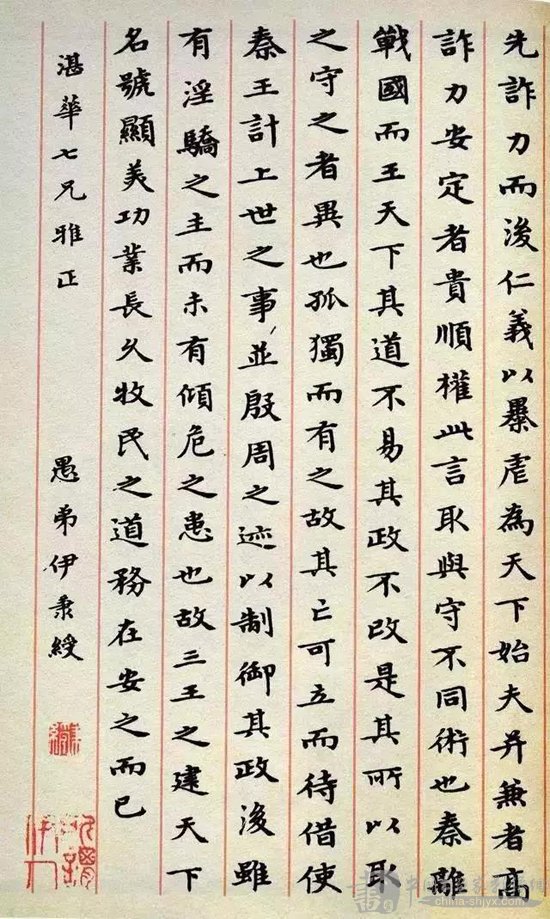 先詐力而後仁義以暴虐為天下始夫并兼者高
詐力安定者貴順權此言取與守不同術也秦離
戰國而王天下其道不易其政不改是其所以取
之守之者異也孤獨而有之故其亡可立而待借使
秦王計上世之事並殷周之迹以制御其政後雖
有淫驕之主而未有傾危之患也故三王之建天下
名號顯美功業長久牧民之道務在安之而已
湛華七兄雅正
愚弟伊秉綬
china-shjyx.com